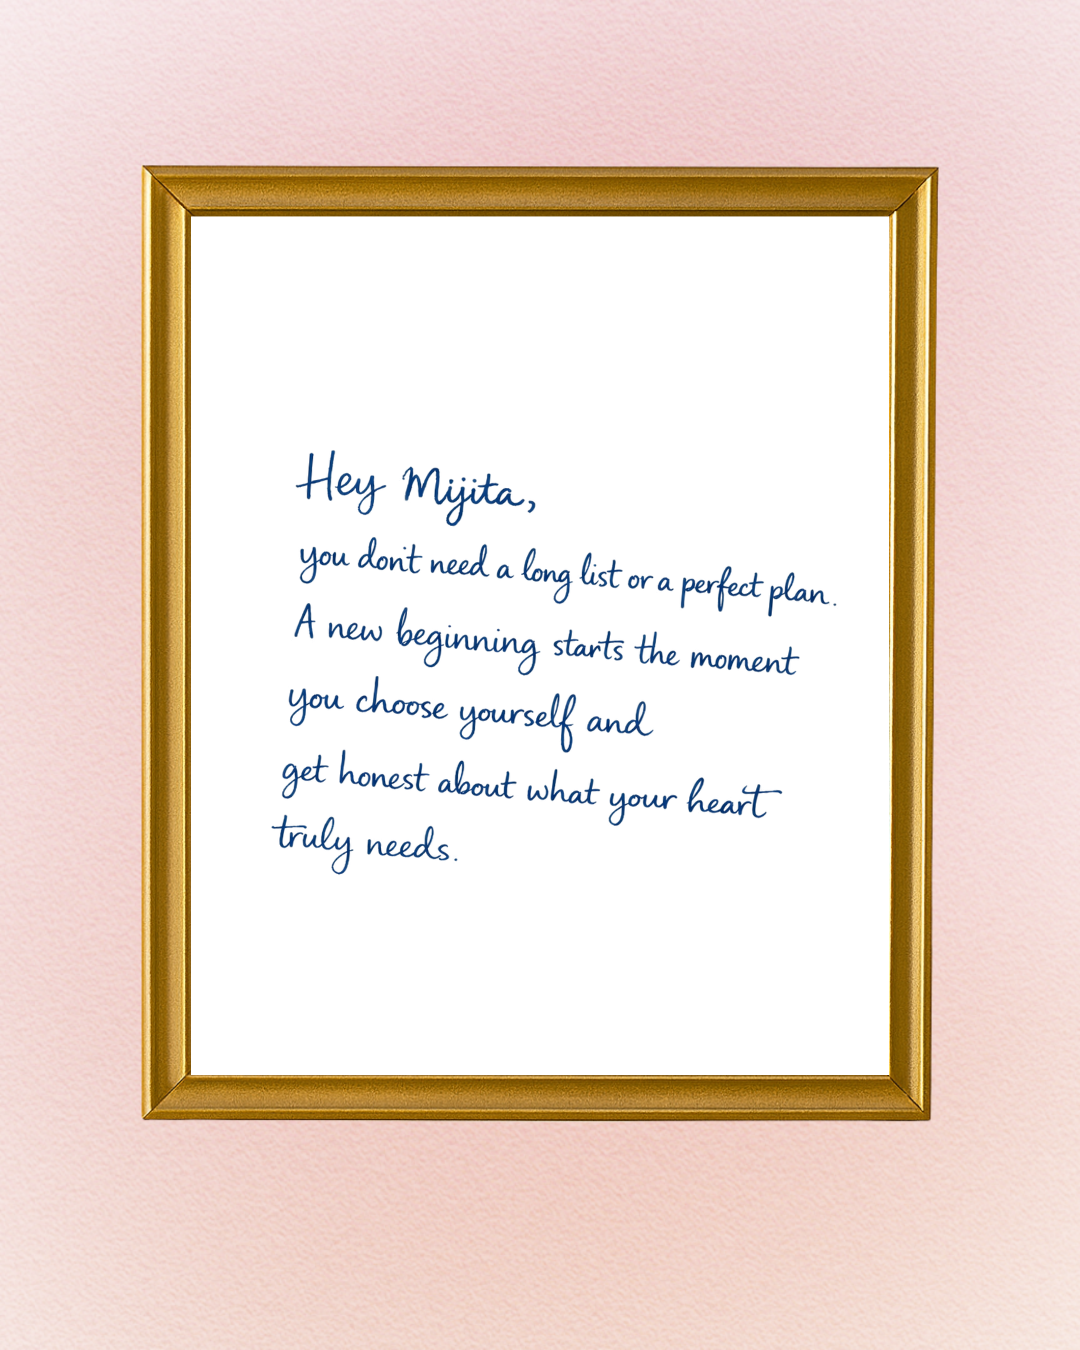 Hey Mijita,
you don't need a long list or a perfect plan.
A new beginning starts the moment
you choose yourself and
get honest about what your heart
truly needs.